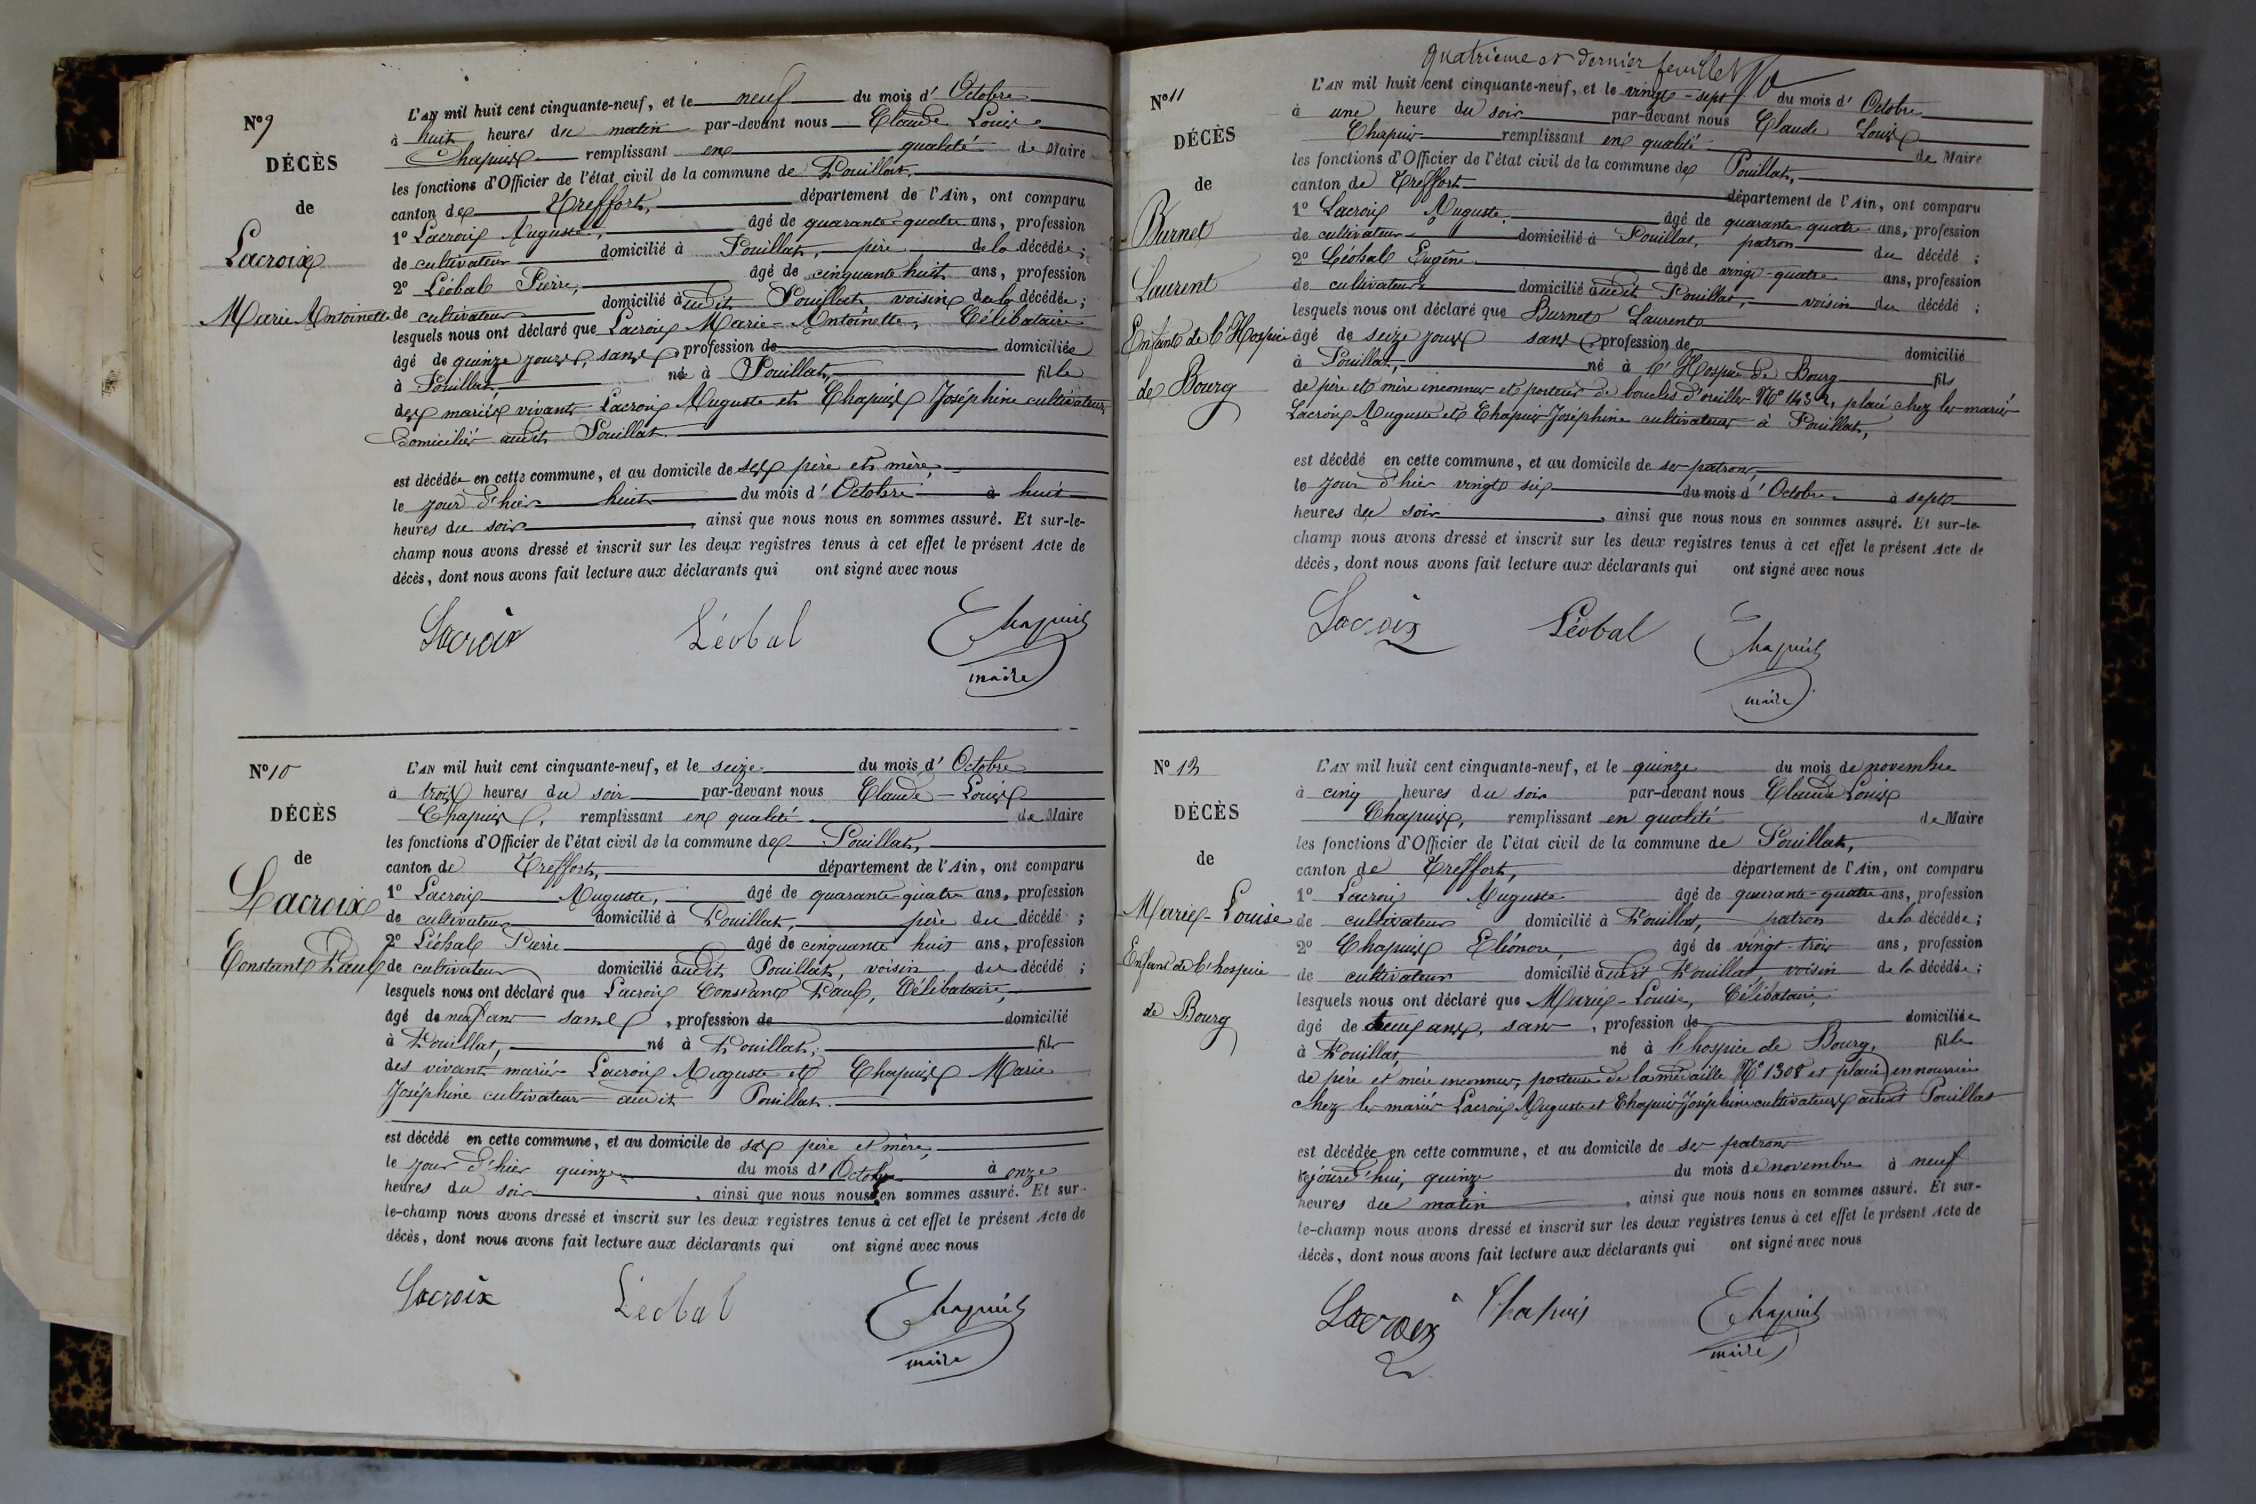 N° 9
DÉCÈS
de
Lacroix
Marie Antoinette
L'AN mil huit cent cinquante-neuf, et le neuf du mois d'Octobre
à huit heures du matin par-devant nous Claude Louis
Chapuis remplissant en qualité de Maire
les fonctions d'Officier de l'état civil de la commune de Pouillat,
canton de Treffort, département de l'Ain, ont comparu
1° Lacroix Auguste, âgé de quarante-quatre ans, profession
de cultivateur domicilié à Pouillat, père de la décédée;
2° Léobal Pierre, âgé de cinquante huit ans, profession
de cultivateur domicilié audit Pouillat voisin de la décédée;
lesquels nous ont déclaré que Lacroix Marie-Antoinette, Célibataire
âgé de quinze jours, sans profession de domiciliée
à Pouillat née à Pouillat, fille
des mariés vivants Lacroix Auguste et Chapuis Joséphine cultivateurs
domiciliés audit Pouillat.
est décédée en cette commune, et au domicile de ses père et mère,
le jour d'hier huit du mois d'Octobre à huit
heures du soir, ainsi que nous nous en sommes assuré. Et sur-le-
champ nous avons dressé et inscrit sur les deux registres tenus à cet effet le présent Acte de
décès, dont nous avons fait lecture aux déclarants qui ont signé avec nous
Lacroix Léobal Chapuis
maire
N° 10
DÉCÈS
de
Lacroix
Constant Paul
L'AN mil huit cent cinquante-neuf, et le seize du mois d'Octobre
à trois heures du soir par-devant nous Claude-Louis
Chapuis, remplissant en qualité de Maire
les fonctions d'Officier de l'état civil de la commune de Pouillat,
canton de Treffort, département de l'Ain, ont comparu
1° Lacroix Auguste, âgé de quarante-quatre ans, profession
de cultivateur domicilié à Pouillat, père du décédé;
2° Léobal Pierre âgé de cinquante huit ans, profession
de cultivateur domicilié audit Pouillat, voisin du décédé;
lesquels nous ont déclaré que Lacroix Constant Paul, Célibataire,
âgé de neuf ans sans, profession de domicilié
à Pouillat, né à Pouillat, fils
des vivants mariés Lacroix Auguste et Chapuis Marie
Joséphine cultivateurs audit Pouillat.
est décédé en cette commune, et au domicile de ses père et mère,
le jour d'hier quinze du mois d'Octobre à onze
heures du soir, ainsi que nous nous en sommes assuré. Et sur-
le-champ nous avons dressé et inscrit sur les deux registres tenus à cet effet le présent Acte de
décès, dont nous avons fait lecture aux déclarants qui ont signé avec nous
Lacroix Léobal Chapuis
maire
quatrième et dernier feuillet
N° 11
DÉCÈS
de
Burnet
Laurent
Enfant de l'Hospice
de Bourg
L'AN mil huit cent cinquante-neuf, et le vingt-sept du mois d'Octobre
à une heure du soir par-devant nous Claude Louis
Chapuis remplissant en qualité de Maire
les fonctions d'Officier de l'état civil de la commune de Pouillat,
canton de Treffort département de l'Ain, ont comparu
1° Lacroix Auguste, âgé de quarante quatre ans, profession
de cultivateur domicilié à Pouillat, patron du décédé;
2° Léobal Eugène âgé de vingt-quatre ans, profession
de cultivateur domicilié audit Pouillat, voisin du décédé;
lesquels nous ont déclaré que Burnet Laurent
âgé de seize jours sans profession de domicilié
à Pouillat, né à l'Hospice de Bourg fils
de père et mère inconnus et porteur de boucles d'oreilles N° 1432, placé chez les mariés
Lacroix Auguste et Chapuis Joséphine cultivateurs à Pouillat,
est décédé en cette commune, et au domicile de ses patrons,
le jour d'hier vingt six du mois d'Octobre à sept
heures du soir, ainsi que nous nous en sommes assuré. Et sur-le-
champ nous avons dressé et inscrit sur les deux registres tenus à cet effet le présent Acte de
décès, dont nous avons fait lecture aux déclarants qui ont signé avec nous
Lacroix Léobal Chapuis
maire
N° 12
DÉCÈS
de
Marie-Louise
Enfant de l'hospice
de Bourg
L'AN mil huit cent cinquante-neuf, et le quinze du mois de novembre
à cinq heures du soir par-devant nous Claude Louis
Chapuis, remplissant en qualité de Maire
les fonctions d'Officier de l'état civil de la commune de Pouillat,
canton de Treffort, département de l'Ain, ont comparu
1° Lacroix Auguste âgé de quarante-quatre ans, profession
de cultivateur domicilié à Pouillat, patron de la décédée;
2° Chapuis Eléonore, âgé de vingt-trois ans, profession
de cultivateur domicilié audit Pouillat, voisin de la décédée;
lesquels nous ont déclaré que Marie-Louise, Célibataire,
âgé de ans, sans, profession de domiciliée
à Pouillat, né à l'hospice de Bourg, fille
de père et mère inconnus, porteuse de la médaille N° 1308 et placée en nourrice
chez les mariés Lacroix Auguste et Chapuis Joséphine cultivateurs audit Pouillat
est décédée en cette commune, et au domicile de ses patrons
cejourd'hui, quinze du mois de novembre à neuf
heures du matin, ainsi que nous nous en sommes assuré. Et sur-
le-champ nous avons dressé et inscrit sur les deux registres tenus à cet effet le présent Acte de
décès, dont nous avons fait lecture aux déclarants qui ont signé avec nous
Lacroix Chapuis Chapuis
maire